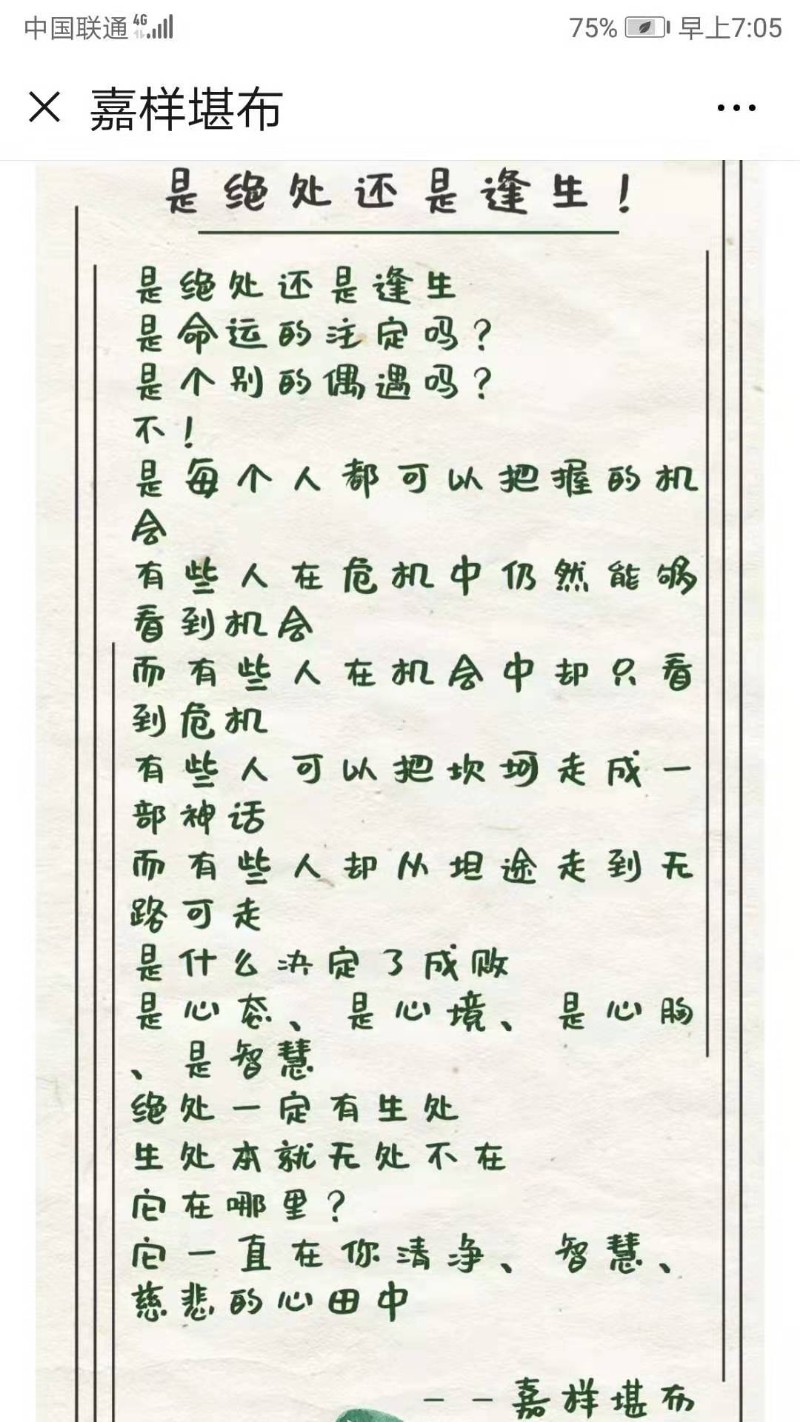 中国联通 4G 75% 早上7:05
嘉样堪布
是绝处还是逢生！
是绝处还是逢生
是命运的注定吗？
是个别的偶遇吗？
不！
是每个人都可以把握的机
会
有些人在危机中仍然能够
看到机会
而有些人在机会中却只看
到危机
有些人可以把坎坷走成一
部神话
而有些人却从坦途走到无
路可走
是什么决定了成败
是心态、是心境、是心胸
、是智慧
绝处一定有生处
生处本就无处不在
它在哪里？
它一直在你清净、智慧、
慈悲的心田中
——嘉样堪布